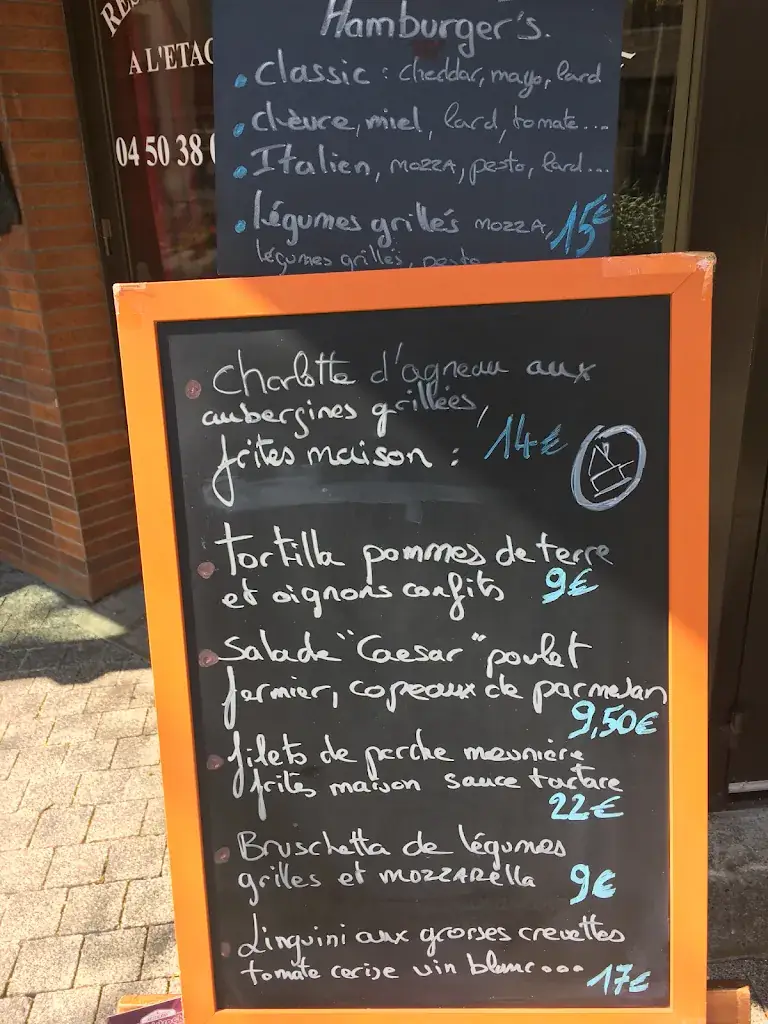 RES
A L'ETAG
04 50 38 0
Hamburger's.
• Classic : cheddar, mayo, lard
• chèvre, miel, lard, tomate...
• Italien, MOZZA, pesto, lard...
• légumes grillés MOZZA, 15€
légumes grillés, pesto...
• Charlotte d'agneau aux
aubergines grillées,
frites maison : 14€
• tortilla pommes de terre
et oignons confits 9€
• Salade "Caesar" poulet
fermier, copeaux de parmesan
9,50€
• filets de perche meunière
frites maison sauce tartare
22€
• Bruschetta de légumes
grilles et MOZZARElla 9€
• Linguini aux grosses crevettes
tomate cerise vin blanc... 17€